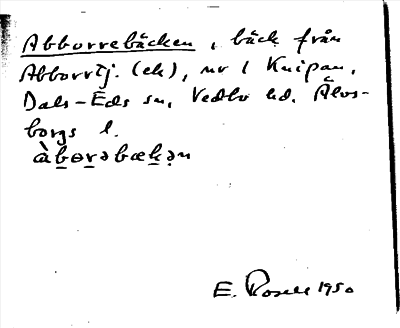 Abborrebäcken, bäck från
Abborrtj. (ek), nr 1 Knipan,
Dals-Eds sn, Vedbo hd. Älvs-
borgs l.
àbɵrəbækən
E. Rosell 1950